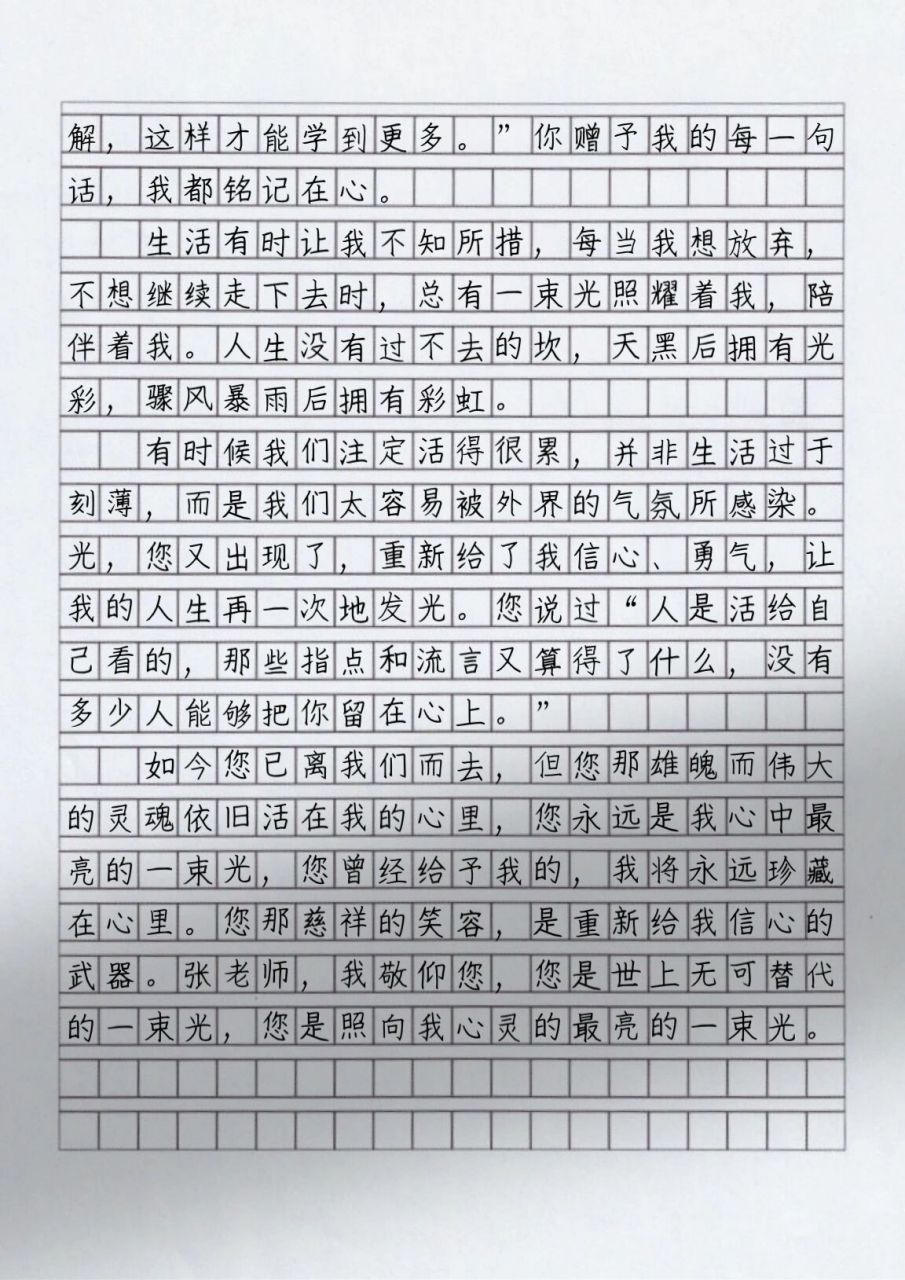 解，这样才能学到更多。”你赠予我的每一句
话，我都铭记在心。
生活有时让我不知所措，每当我想放弃，
不想继续走下去时，总有一束光照耀着我，陪
伴着我。人生没有过不去的坎，天黑后拥有光
彩，骤风暴雨后拥有彩虹。
有时候我们注定活得很累，并非生活过于
刻薄，而是我们太容易被外界的气氛所感染。
光，您又出现了，重新给了我信心、勇气，让
我的人生再一次地发光。您说过“人是活给自
己看的，那些指点和流言又算得了什么，没有
多少人能够把你留在心上。”
如今您已离我们而去，但您那雄魄而伟大
的灵魂依旧活在我的心里，您永远是我心中最
亮的一束光，您曾经给予我的，我将永远珍藏
在心里。您那慈祥的笑容，是重新给我信心的
武器。张老师，我敬仰您，您是世上无可替代
的一束光，您是照向我心灵的最亮的一束光。